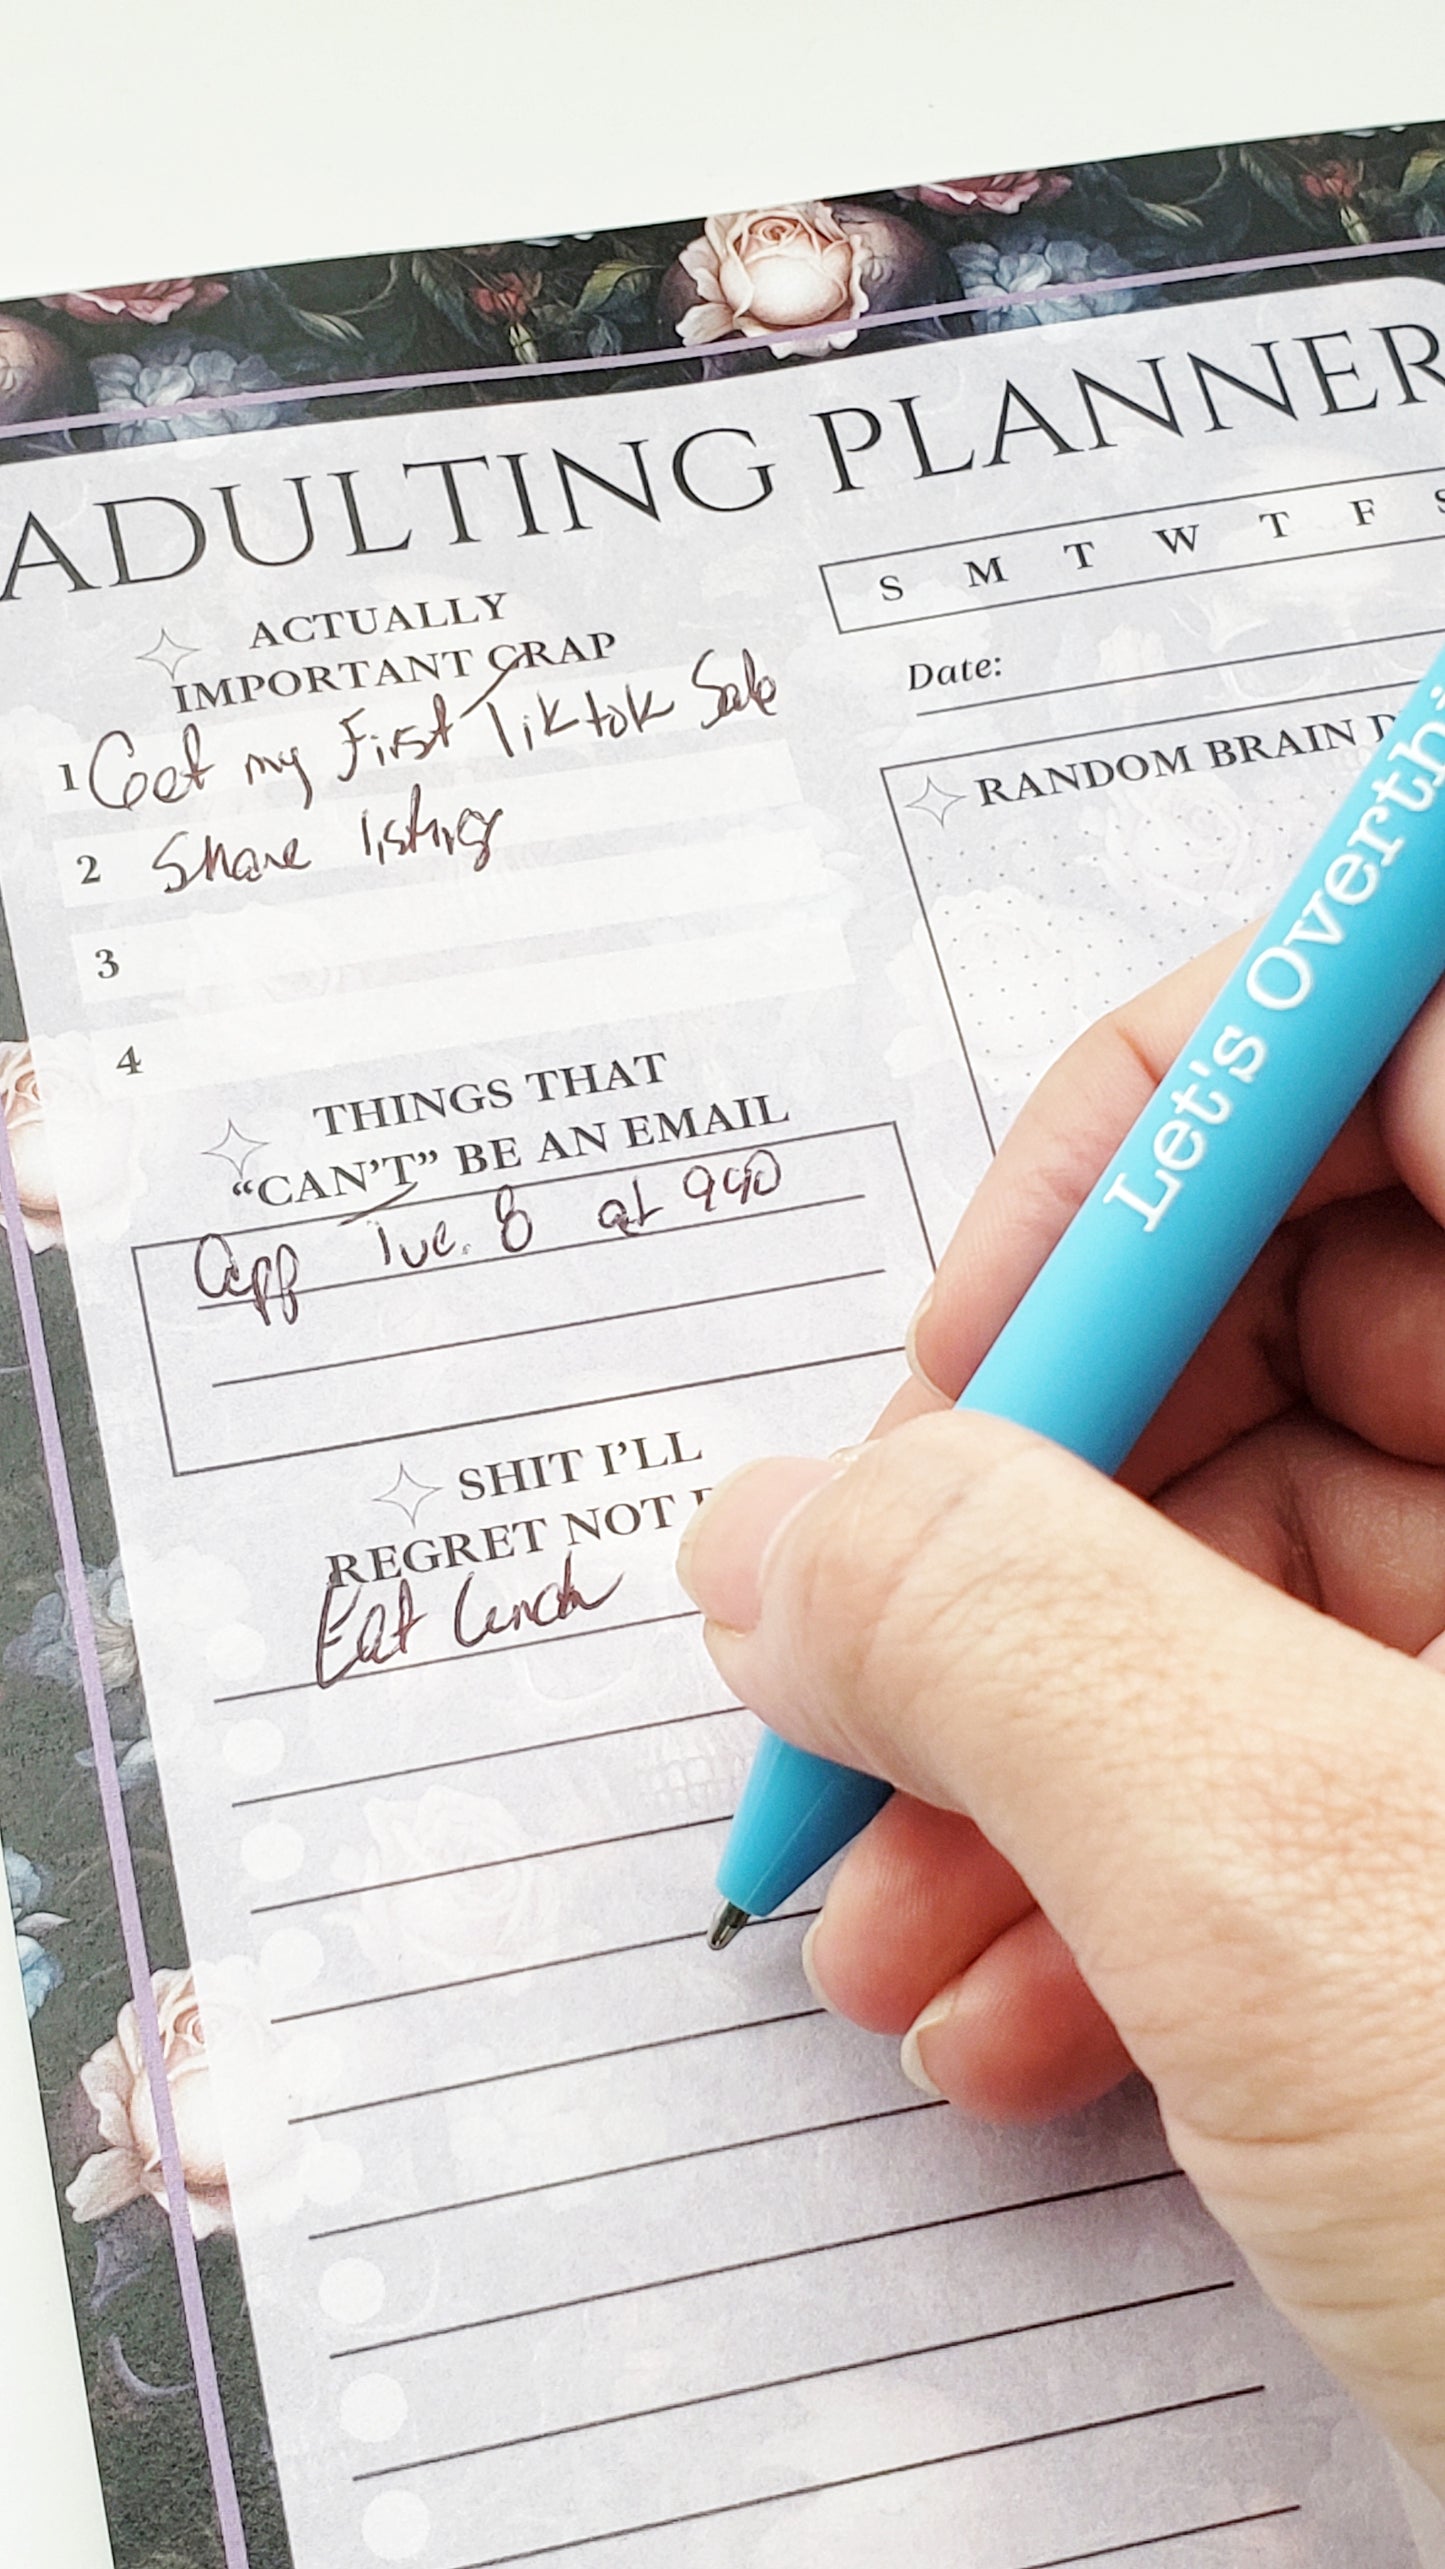 ADULTING PLANNER
S M T W T F S
Date:
ACTUALLY
IMPORTANT CRAP
1 Get my First Tiktok Sale
2 Share listing
3
4
RANDOM BRAIN
THINGS THAT
"CAN'T" BE AN EMAIL
app Tue. 8 at 940
SHIT I'LL
REGRET NOT
Eat lunch
Let's Overthi